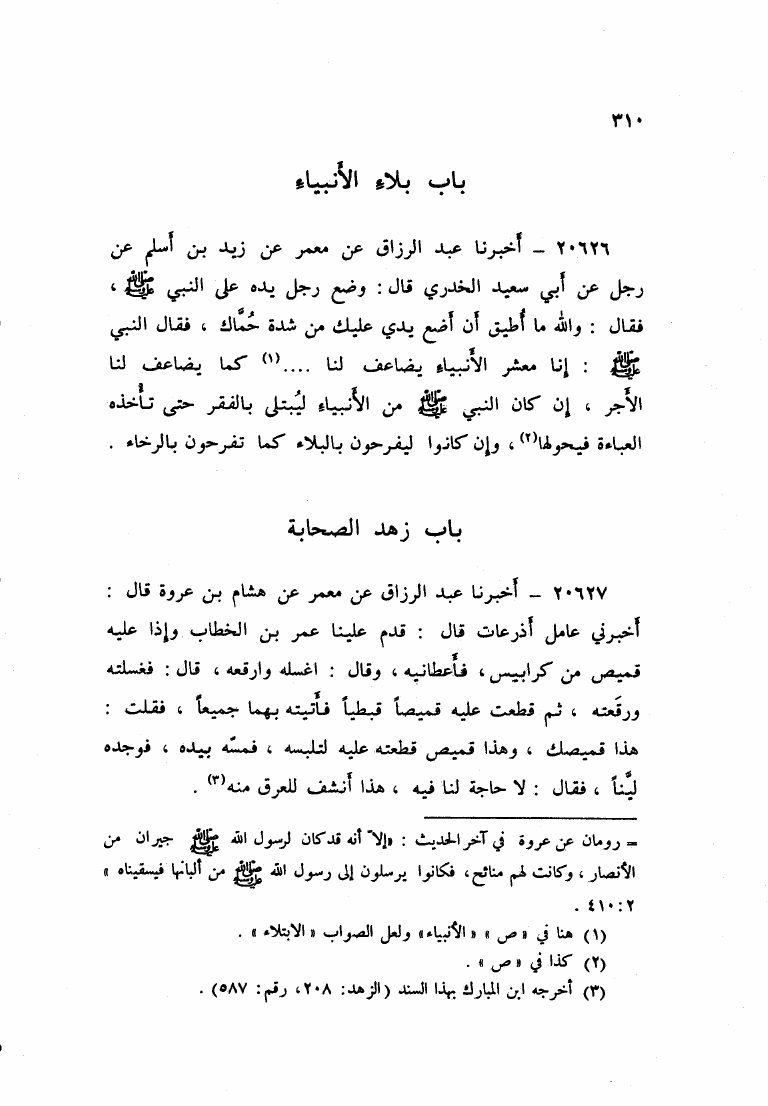 ٣١٠
باب بلاء الأنبياء
٢٠٦٢٦ – أخبرنا عبد الرزاق عن معمر عن زيد بن أسلم عن
رجل عن أبي سعيد الخدري قال : وضع رجل يده على النبي ﷺ ،
فقال : والله ما أُطيق أن أضع يدي عليك من شدة حُمَّاك ، فقال النبي
ﷺ : إنا معشر الأنبياء يضاعف لنا ....(١) كما يضاعف لنا
الأجر ، إن كان النبي ﷺ من الأنبياء ليُبتلى بالفقر حتى تأخذه
العباءة فيحولها(٢) ، وإن كانوا ليفرحون بالبلاء كما تفرحون بالرخاء .
باب زهد الصحابة
٢٠٦٢٧ – أخبرنا عبد الرزاق عن معمر عن هشام بن عروة قال :
أخبرني عامل أذرعات قال : قدم علينا عمر بن الخطاب وإذا عليه
قميص من كرابيس ، فأعطانيه ، وقال : اغسله وارقعه ، قال : فغسلته
ورقَعته ، ثم قطعت عليه قميصاً قبطياً فأتيته بهما جميعاً ، فقلت :
هذا قميصك ، وهذا قميص قطعته عليه لتلبسه ، فمسّه بيده ، فوجده
ليِّناً ، فقال : لا حاجة لنا فيه ، هذا أنشف للعرق منه(٣) .
= رومان عن عروة في آخر الحديث : «إلا أنه قد كان لرسول الله ﷺ جيران من
الأنصار ، وكانت لهم منائح ، فكانوا يرسلون إلى رسول الله ﷺ من ألبانها فيسقيناه »
٢ : ٤١٠ .
(١) هنا في « ص » « الأنبياء» ولعل الصواب « الابتلاء » .
(٢) كذا في « ص » .
(٣) أخرجه ابن المبارك بهذا السند (الزهد: ٢٠٨ ، رقم: ٥٨٧) .